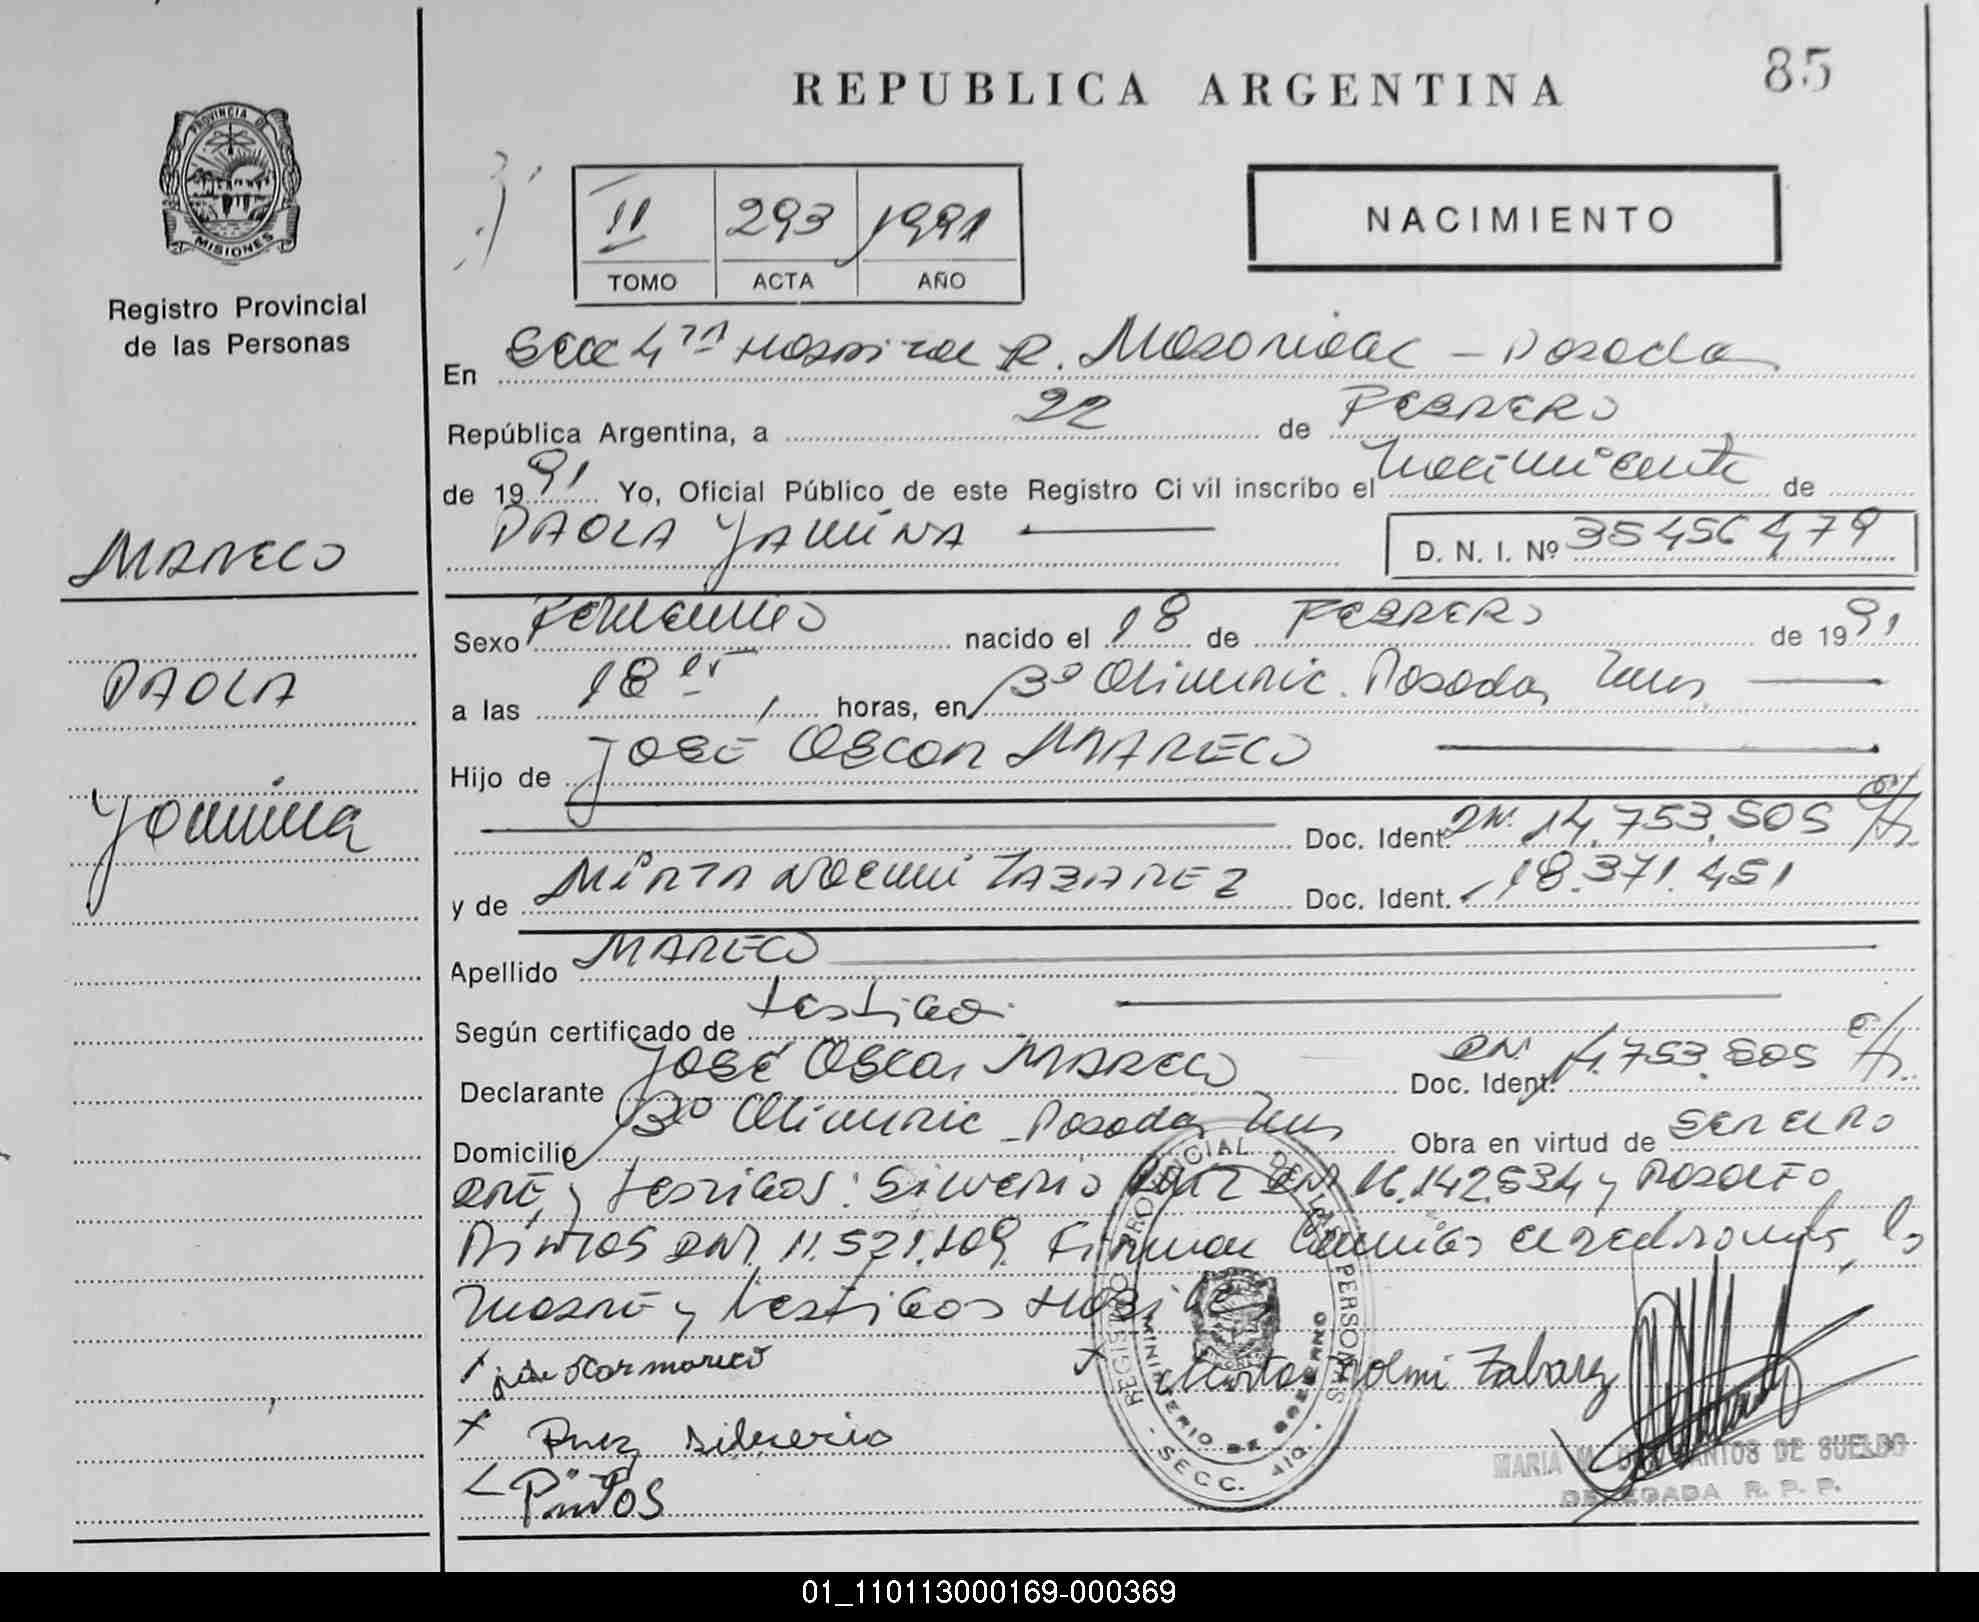 85
REPUBLICA ARGENTINA
PROVINCIA DE
MISIONES
Registro Provincial
de las Personas
II 293 1991
TOMO ACTA AÑO
NACIMIENTO
En Secc 4ta Hospital R. Madariaga - Posadas
República Argentina, a 22 de FEBRERO
de 1991 Yo, Oficial Público de este Registro Civil inscribo el Nacimiento de
PAOLA YAMINA
D. N. I. Nº 35456479
MARECO
PAOLA
Yamina
Sexo Femenino nacido el 18 de FEBRERO de 1991
a las 18 horas, en Posadas Mnes
Hijo de JOSÉ OSCAR MARECO
Doc. Ident. DNI. 14.753.505
y de MIRTA NOEMI ZABAREZ Doc. Ident. 18.371.451
Apellido MARECO
Según certificado de testigos
Declarante JOSÉ OSCAR MARECO Doc. Ident. DNI. 14.753.505
Domicilio Posadas Mnes Obra en virtud de ser el PA
DRE, y testigos: Silverio DNI 16.142.534 y RODOLFO
PINTOS DNI. 11.521.109. Firman conmigo el declarante, la
MADRE y testigos
jose oscar mareco
x Mirta Noemi Zabarez
x silverio
Pintos
REGISTRO PROVINCIAL DE LAS PERSONAS
MINISTERIO DE GOBIERNO
- SECC. 4ta. -
MARIA M. DOS SANTOS DE SUELDO
DELEGADA R. P. P.
01_110113000169-000369